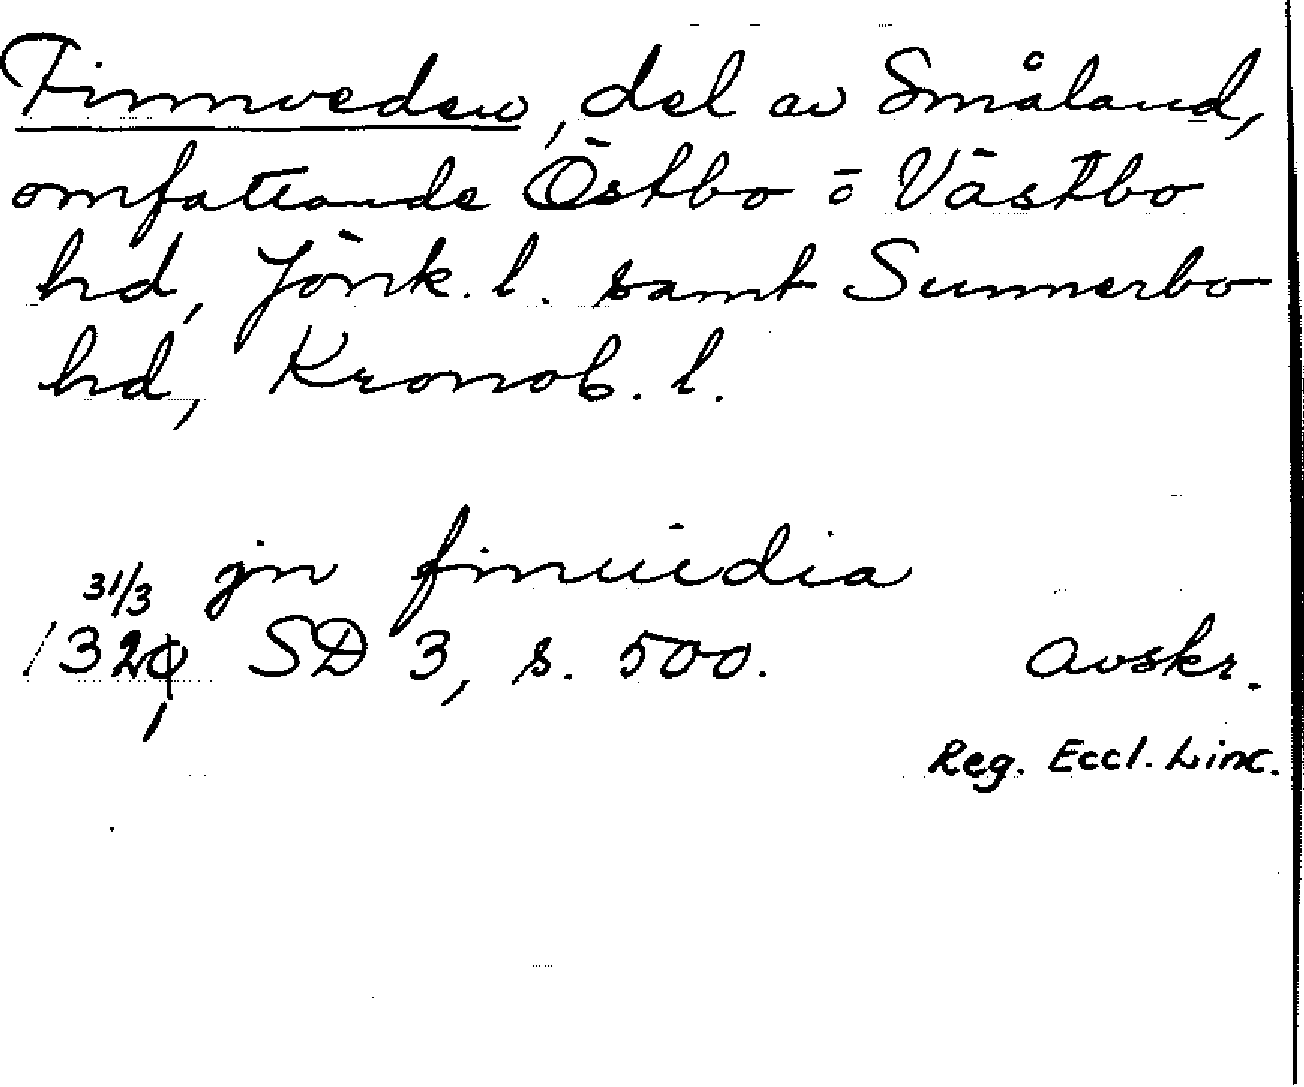 Finnveden, del av Småland,
omfattande Östbo o Västbo
hd, Jönk. l. samt Sunnerbo
hd, Kronob. l.
jn finuidia
31/3
1320, SD 3, s. 500. Avskr.
Reg. Eccl. Linc.